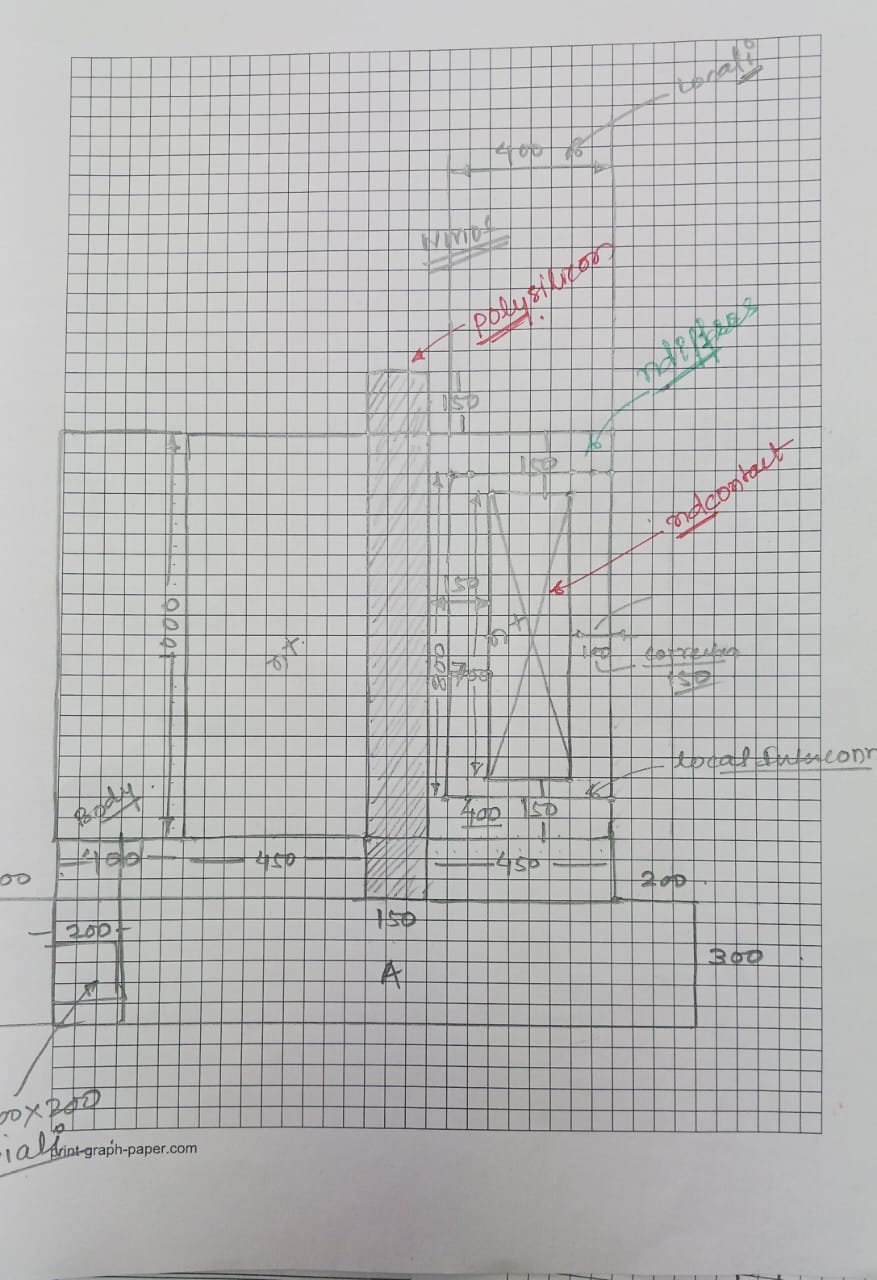 locali
400
Nmos
polysilicon
150
ndiffres
150
ndcontact
1000
150
800
700
100
correction
150
local Interconn
Body
400
150
400
450
450
00
200
200
150
300
A
00X200
iali
print-graph-paper.com